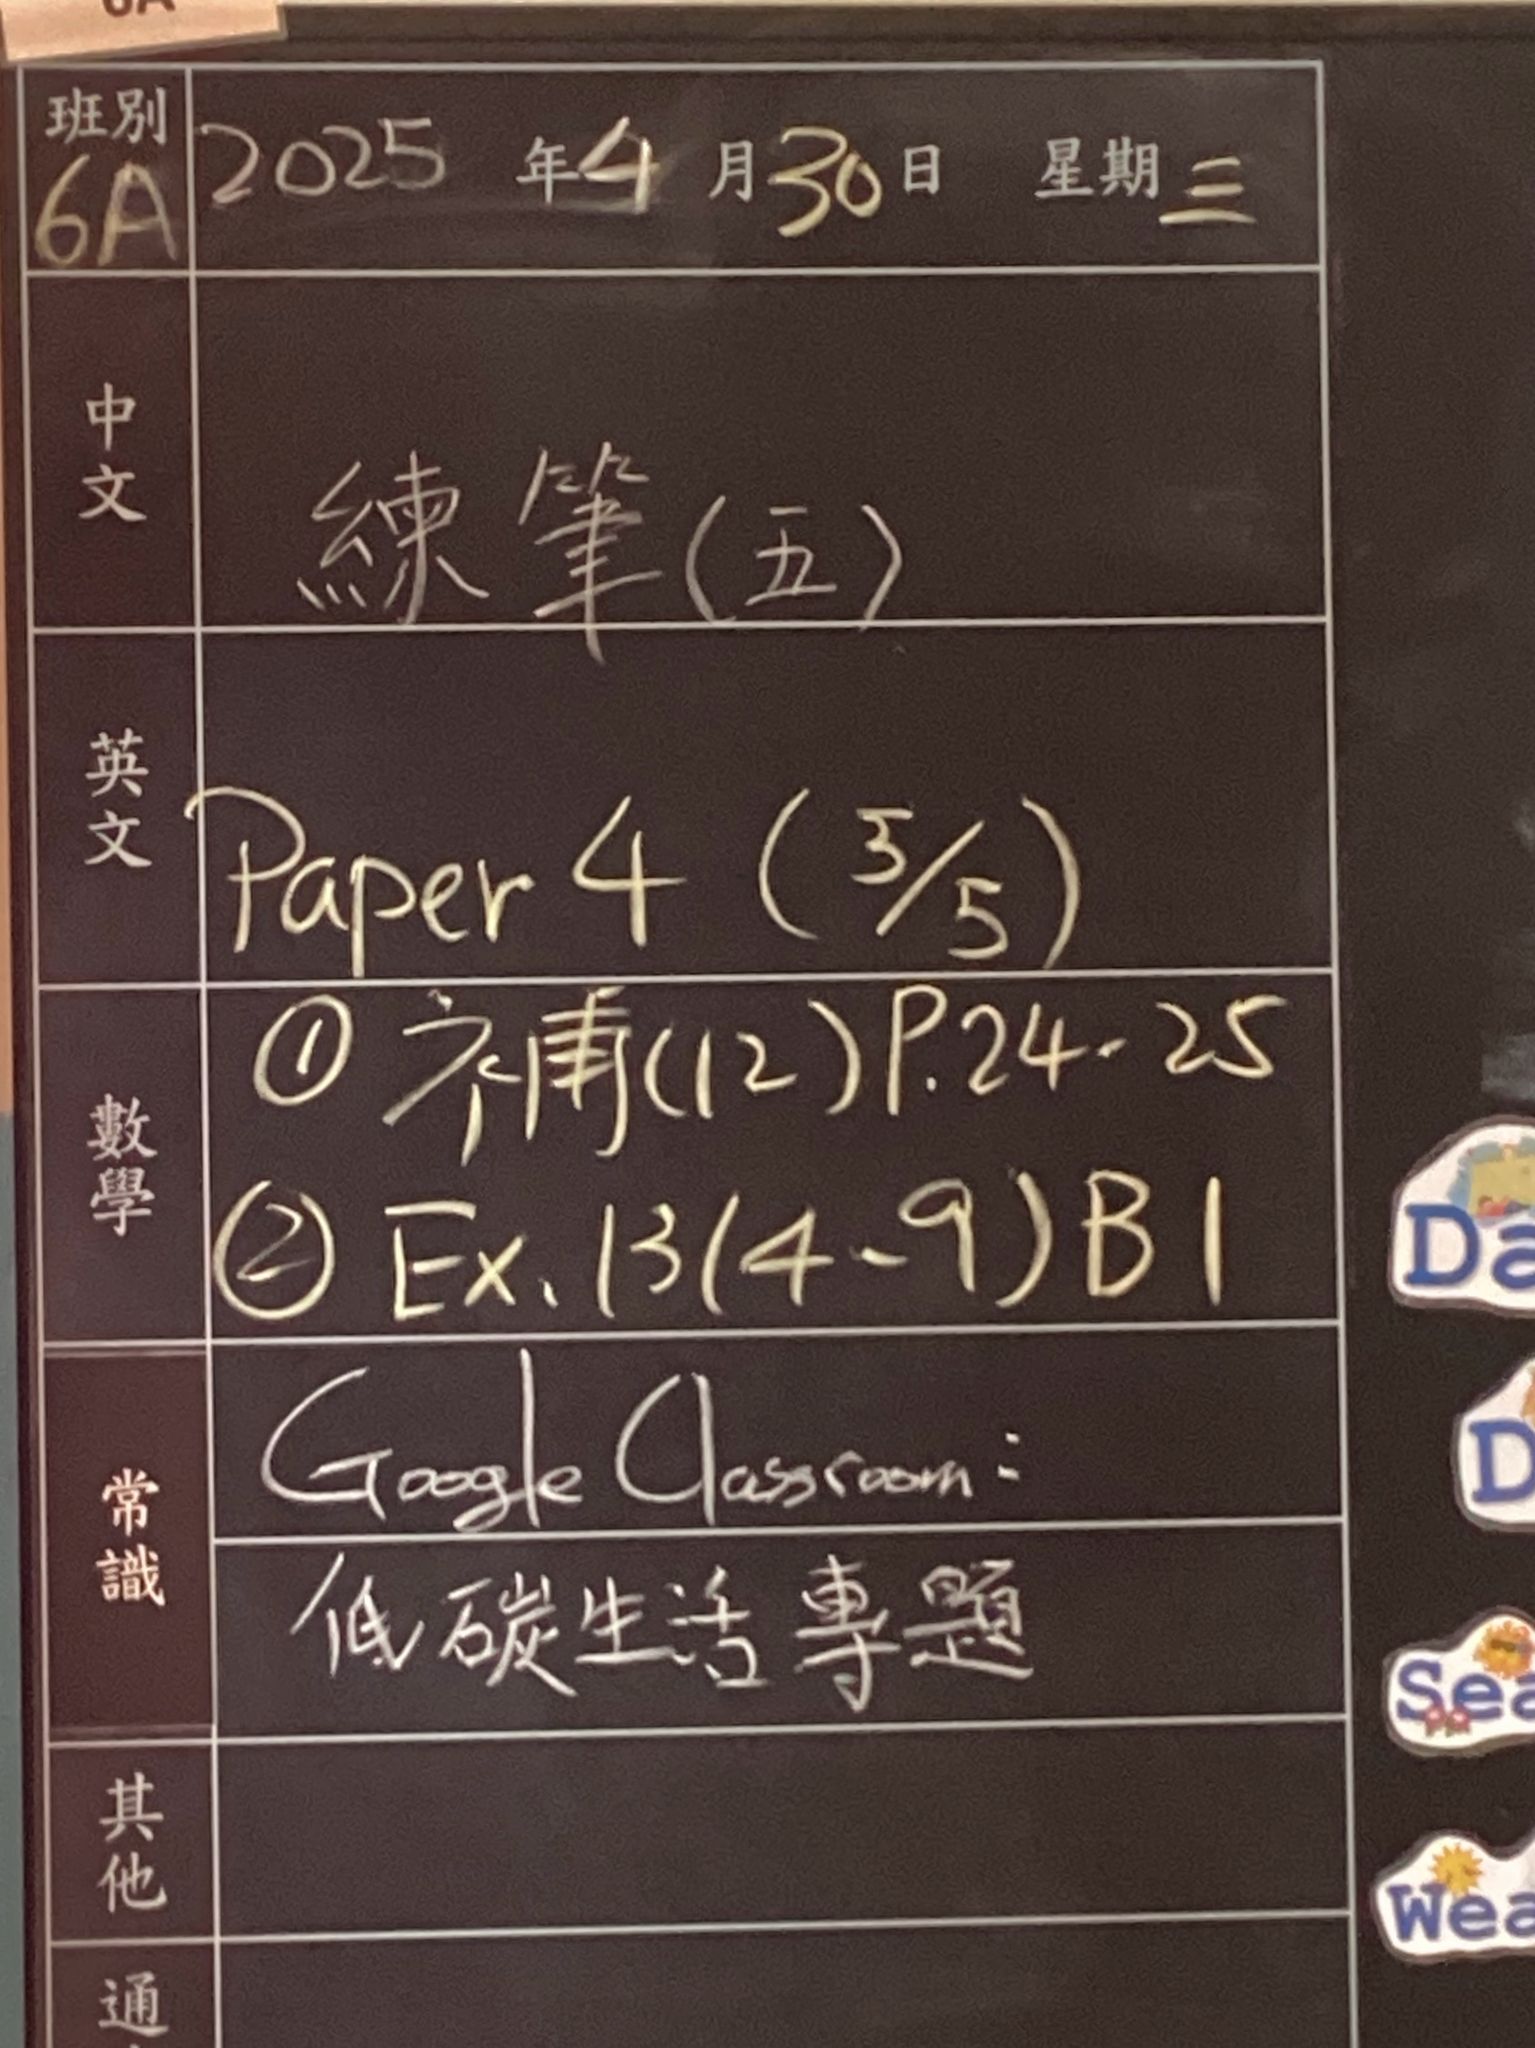 6A
班別 2025 年 4 月 30 日 星期三
6A
中文
練筆(五)
英文
Paper 4 (5/5)
數學
① 補(12) P.24-25
② Ex. 13(4-9) B1
常識
Google Classroom:
低碳生活專題
其他
通
Da
D
Sea
Wea